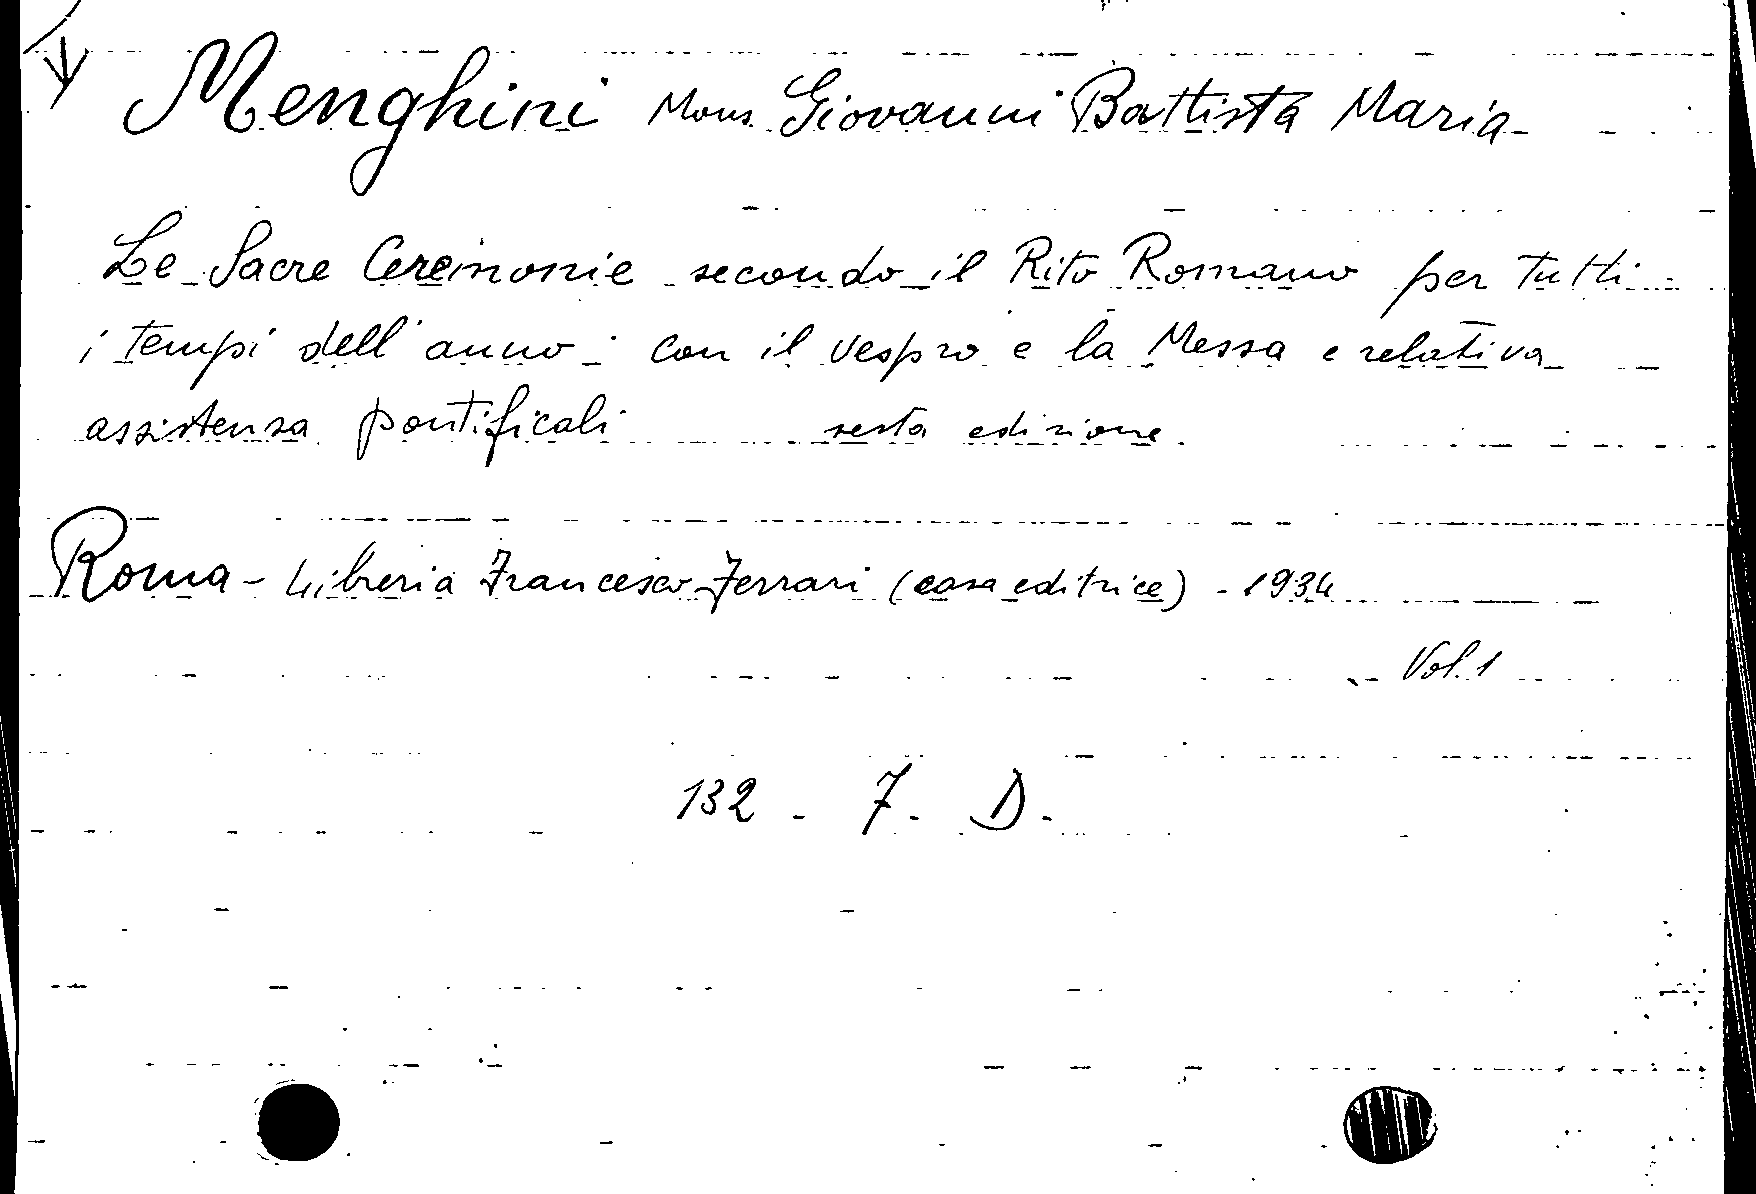 Menghini Mons. Giovanni Battista Maria
Le Sacre Cerimonie secondo il Rito Romano per tutti
i tempi dell'anno - con il vespro e la Messa e relativa
assistenza pontificali sesta edizione.
Roma - Libreria Francesco Ferrari (casa editrice) - 1934
Vol. 1
132 - 7. D.